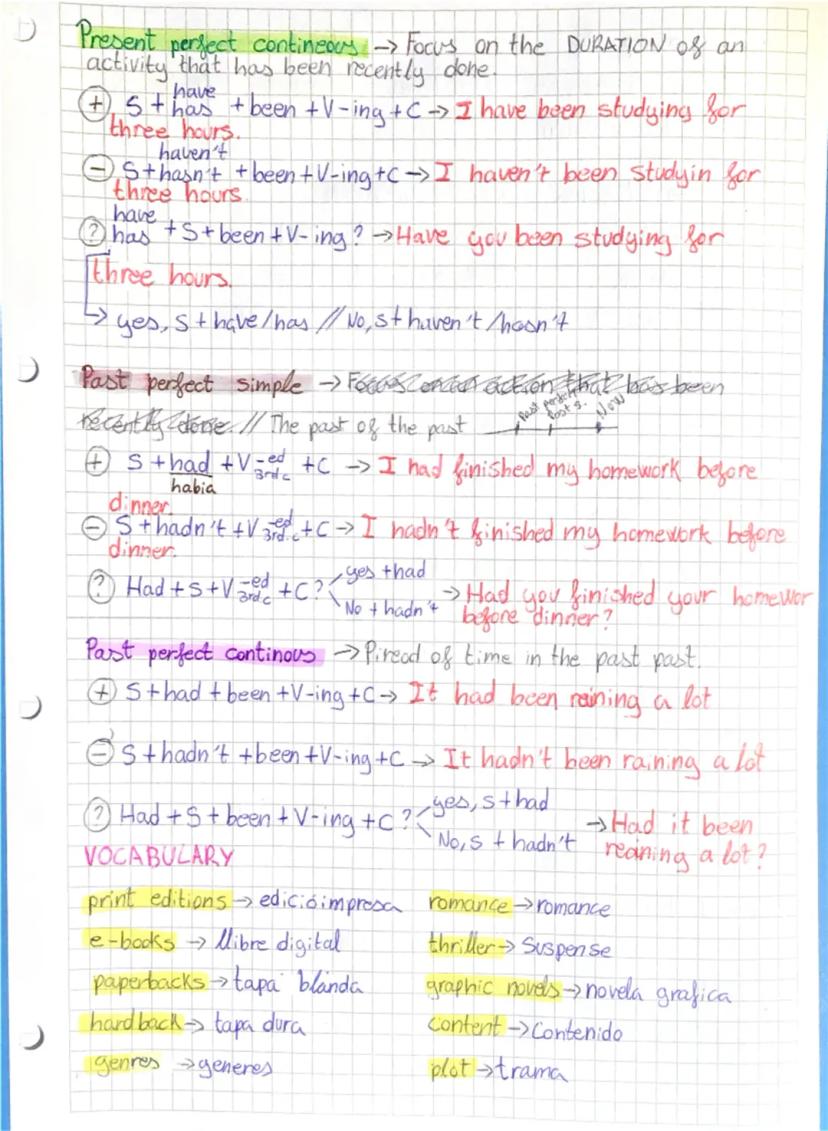 Present perfect contineous → Focus on the DURATION of an
activity that has been recently done.
have
+ S + has + been + V-ing + C → I have been studying for
three hours.
haven't
- S + hasn't + been + V-ing + C → I haven't been studyin for
three hours.
have
? has + S + been + V-ing? → Have you been studying for
three hours.
↳ yes, S + have/has // No, S + haven't/hasn't
Past perfect simple → Focus on an action that has been
recently done. // The past of the past Past perfect Past s. Now
+ S + had + V -ed 3rd c + C → I had finished my homework before
habia
dinner.
- S + hadn't + V -ed 3rd c + C → I hadn't finished my homework before
dinner.
? Had + S + V -ed 3rd c + C? yes + had
No + hadn't → Had you finished your homewor
before dinner?
Past perfect continous → Piread of time in the past past.
+ S + had + been + V-ing + C → It had been reining a lot
- S + hadn't + been + V-ing + C → It hadn't been raining a lot
? Had + S + been + V-ing + C? yes, S + had
No, S + hadn't → Had it been
reaining a lot?
VOCABULARY
print editions → edició impresa romance → romance
e-books → llibre digital thriller → Suspense
paperbacks → tapa blanda graphic novels → novela grafica
hardback → tapa dura content → Contenido
genres → generes plot → trama